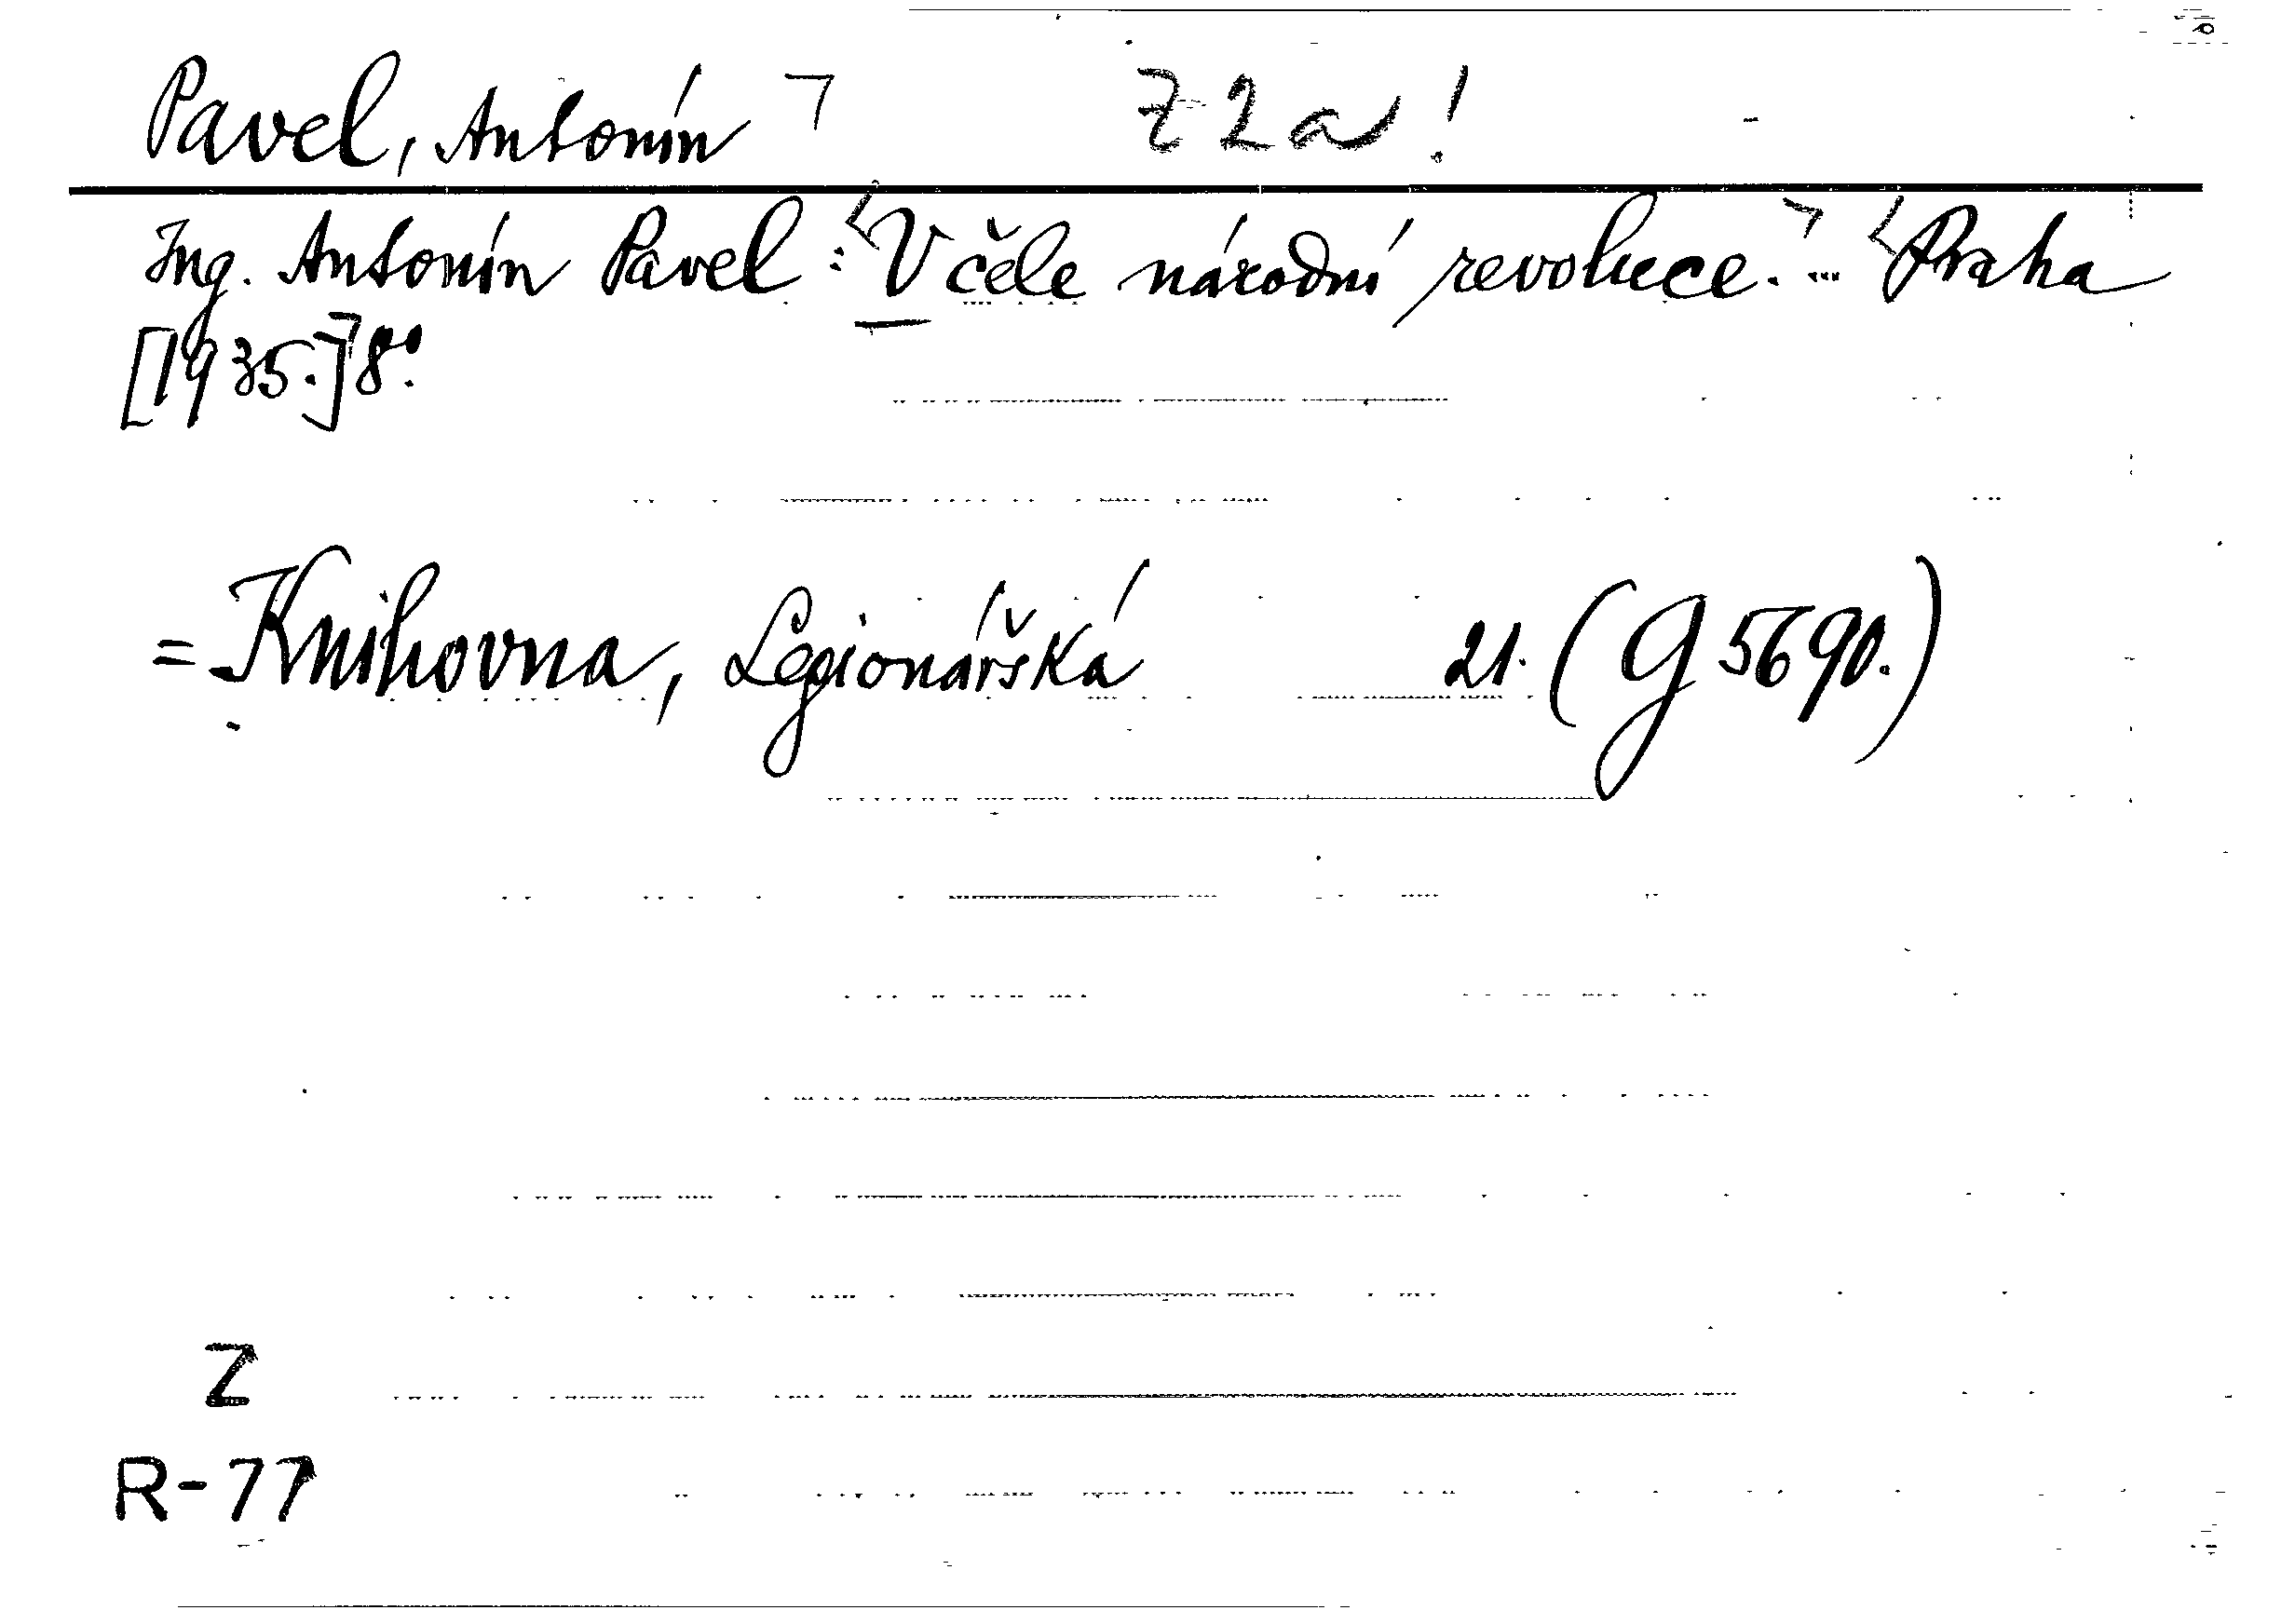 Pavel, Antonín ㄱ Z 2 a !
Ing. Antonín Pavel: V čele národní revoluce. ... Praha
[1935.] 8°.
= Knihovna, Legionářská 21. (G 5690.)
Z
R-77